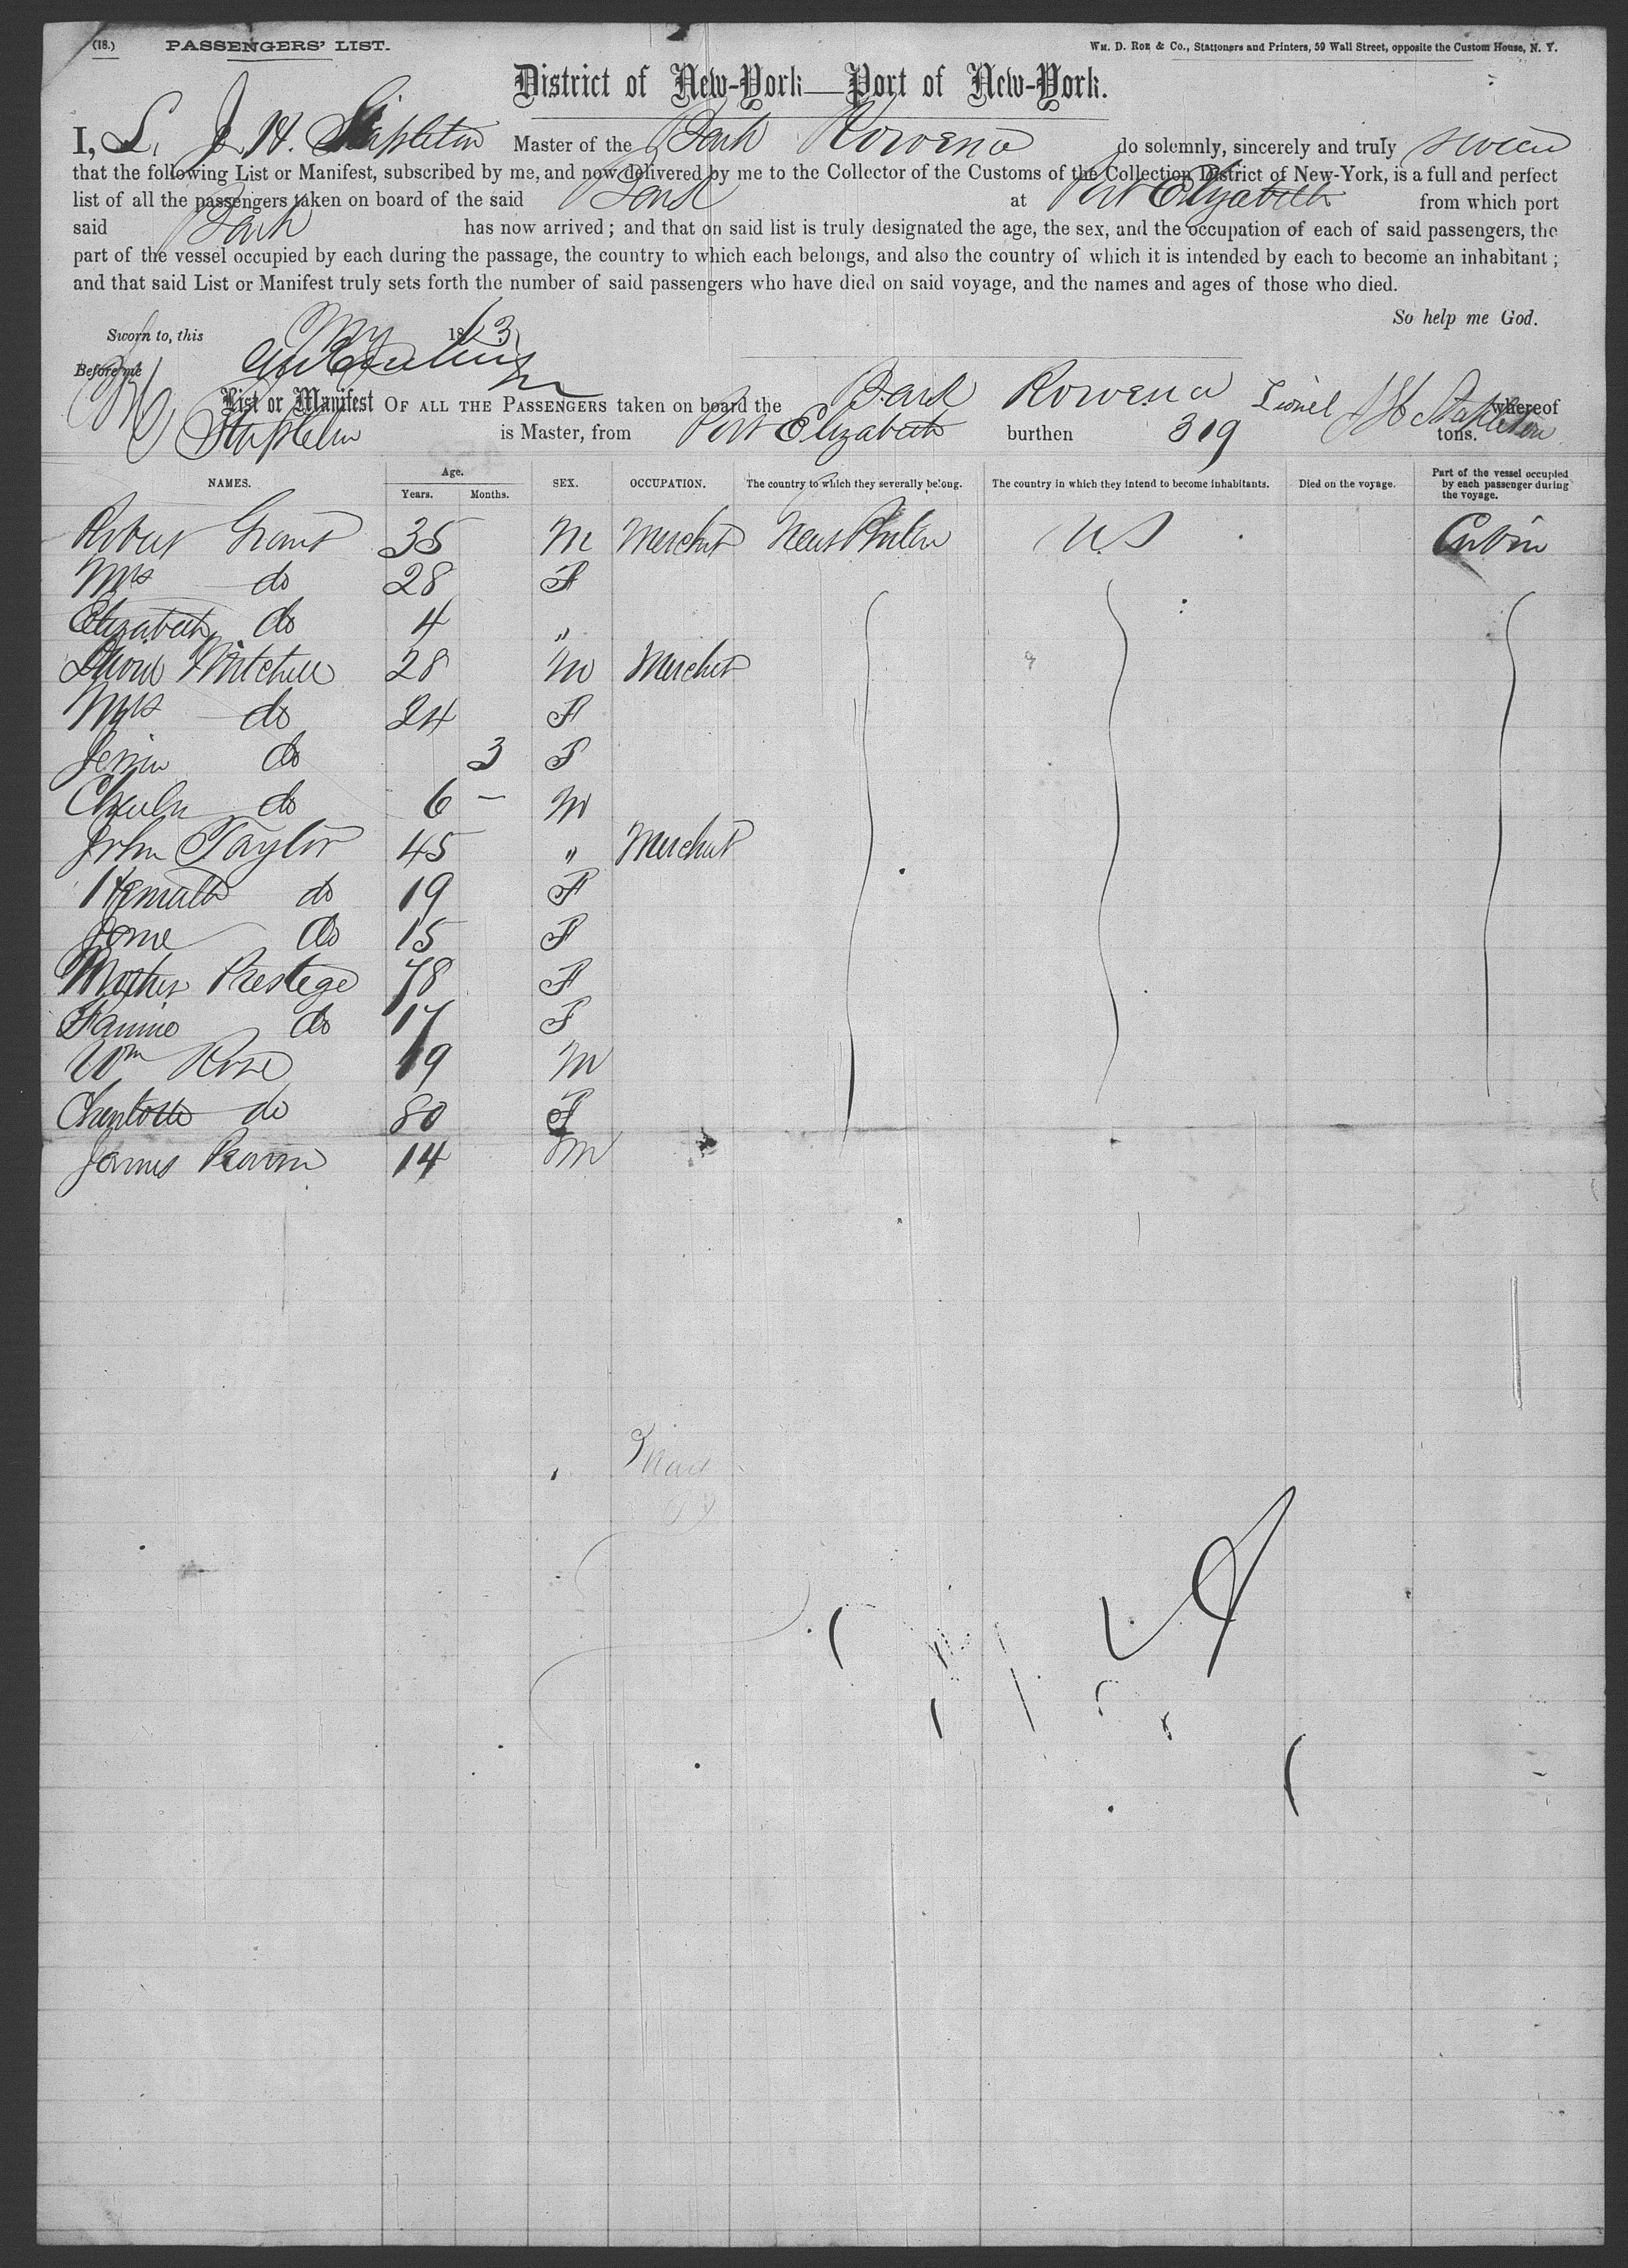 (18.) PASSENGERS' LIST. WM. D. ROE & CO., Stationers and Printers, 59 Wall Street, opposite the Custom House, N. Y.
District of New-York—Port of New-York.
I, L. J. H. Stapleton Master of the Bark Rowena do solemnly, sincerely and truly swear
that the following List or Manifest, subscribed by me, and now delivered by me to the Collector of the Customs of the Collection District of New-York, is a full and perfect
list of all the passengers taken on board of the said Bark at Port Elizabeth from which port
said Bark has now arrived; and that on said list is truly designated the age, the sex, and the occupation of each of said passengers, the
part of the vessel occupied by each during the passage, the country to which each belongs, and also the country of which it is intended by each to become an inhabitant;
and that said List or Manifest truly sets forth the number of said passengers who have died on said voyage, and the names and ages of those who died.
So help me God.
Sworn to, this My 1863
Before me
List or Manifest OF ALL THE PASSENGERS taken on board the Bark Rowena Lionel J H Stapleton whereof
Stapleton is Master, from Port Elizabeth burthen 319 tons.
NAMES. Age. Years. Months. SEX. OCCUPATION. The country to which they severally belong. The country in which they intend to become inhabitants. Died on the voyage. Part of the vessel occupied by each passenger during the voyage.
Robert Grant 35 M Merchnt Great Britain U.S Cabin
Mrs do 28 F
Elizabeth do 4 "
David Mitchell 28 M Merchnt
Mrs do 24 F
Jessie do 3 F
Charles do 6 — M
John Taylor 45 " Merchnt
do 19 F
Jane do 15 F
Prestege 78 F
Fannie do 17 F
Wm Rose 19 M
Charlotte do 80 F
James 14 M